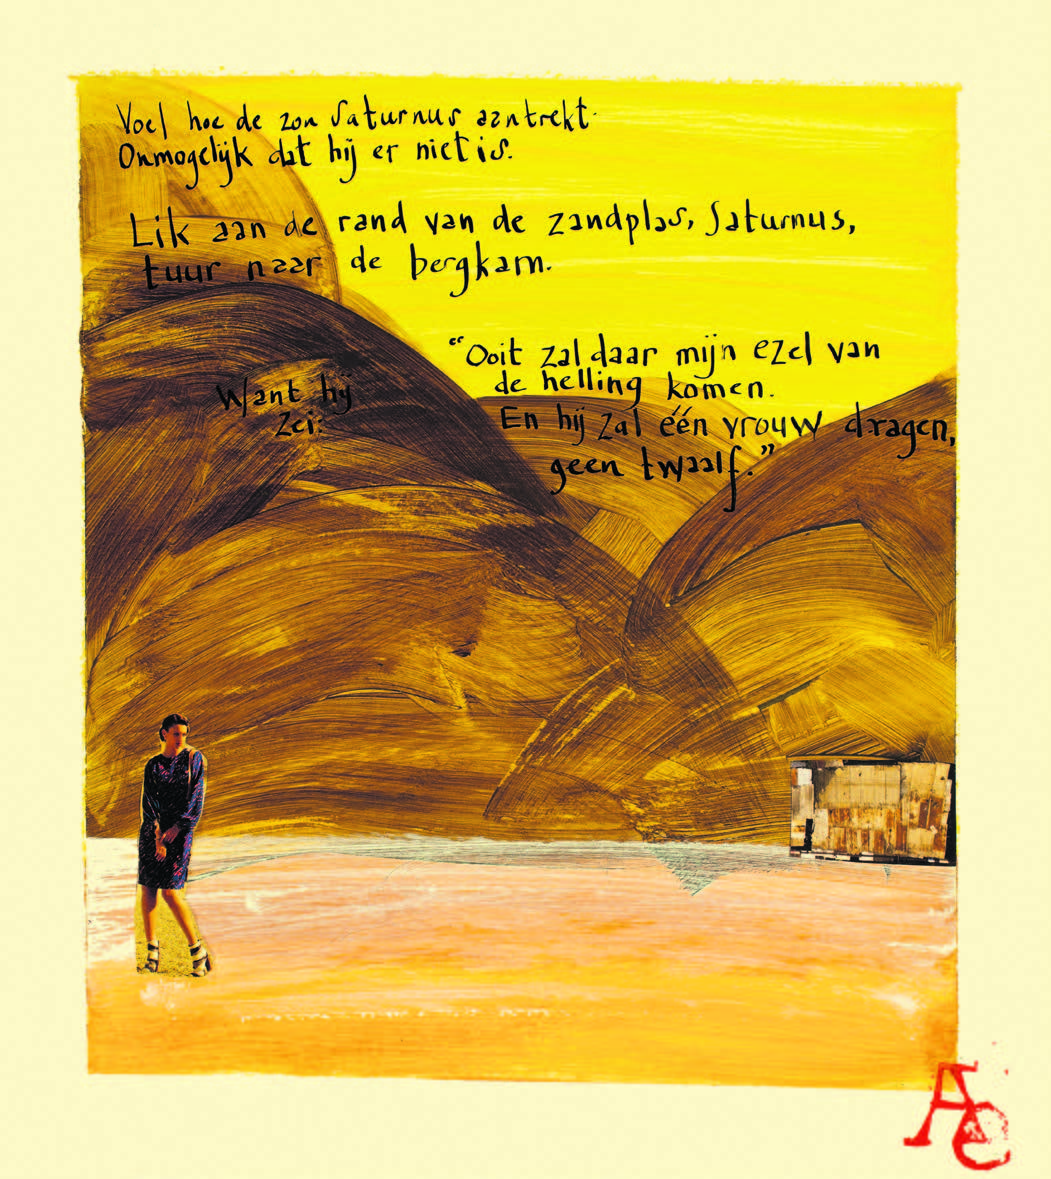 Voel hoe de zon Saturnus aantrekt.
Onmogelijk dat hij er niet is.
Lik aan de rand van de zandplas, Saturnus,
tuur naar de bergkam.
Want hij
zei:
"Ooit zal daar mijn ezel van
de helling komen.
En hij zal één vrouw dragen,
geen twaalf."
AC